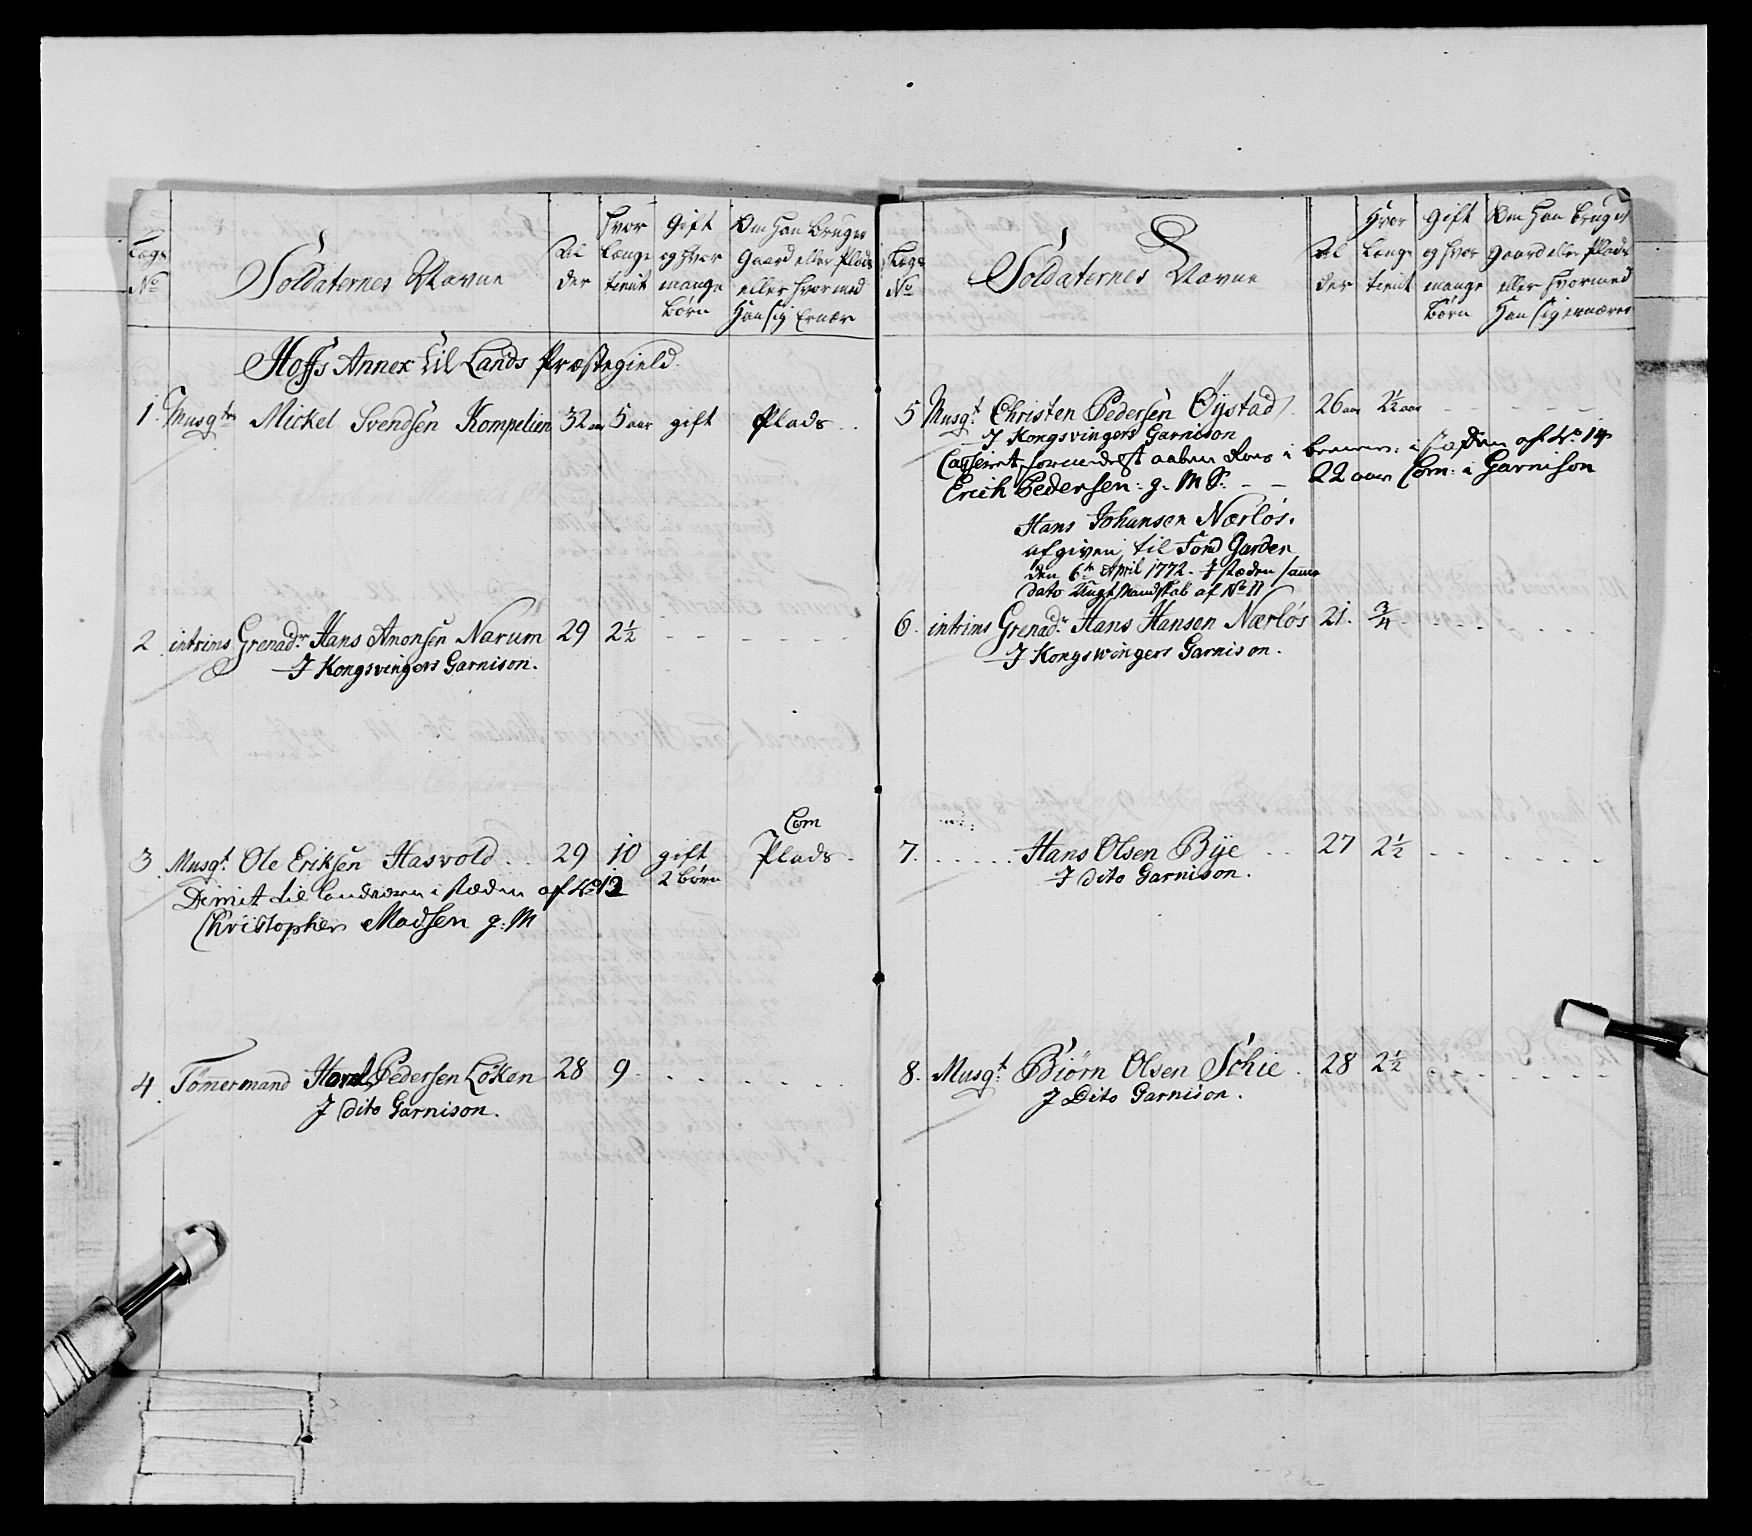 Lægs
No
Soldaternes Navne
Al
der
Hvor
Længe
tient
Gift
og hvor
mange
børn
Om Han bruger
Gaard eller Plads
eller hvormed
Han sig Ernær
Hoffs Annex til Lands Præstegield
1. Musqtr Mickel Svendsen Kompelien 32 aar 5 aar gift Plads
2. intrims Grenadr Hans Amonsen Narum 29 2½
I Kongsvingers Garnison.
Com
3. Musqt. Ole Eriksen Hasvold 29 10 gift Plads
2 børn
Dimit til landværn i stæden af No 12
Christopher Madsen g: M
4. Tömermand Pedersen Löken 28 9
I dito Garnison.
Lægs
No
Soldaternes Navne
Al
der
Hvor
Længe
tient
Gift
og hvor
mange
Børn
Om Han bruger
Gaard eller Plads
eller hvormed
Han sig ernærer
5 Musqt. Christen Pedersen Öystad 26 aar 2½ aar
I Kongsvingers Garnison
Casseret formedelst aaben i i stæden af No 14
Erich Pedersen: g. M S. 22 aar Com: i Garnison
Hans Johansen Nærlös.
afgiven til Garden
den 6te April 1772. I stæden samme
dato Ungt Mandskab af No 11
6. intrims Grenadr. Hans Hansen Nærlös 21. ¾
I Kongswingers Garnison.
7. Hans Olsen Bÿe 27 2½
I dito Garnison.
8. Musqt. Biörn Olsen Sohie 28 2½
I Dito Garnison.